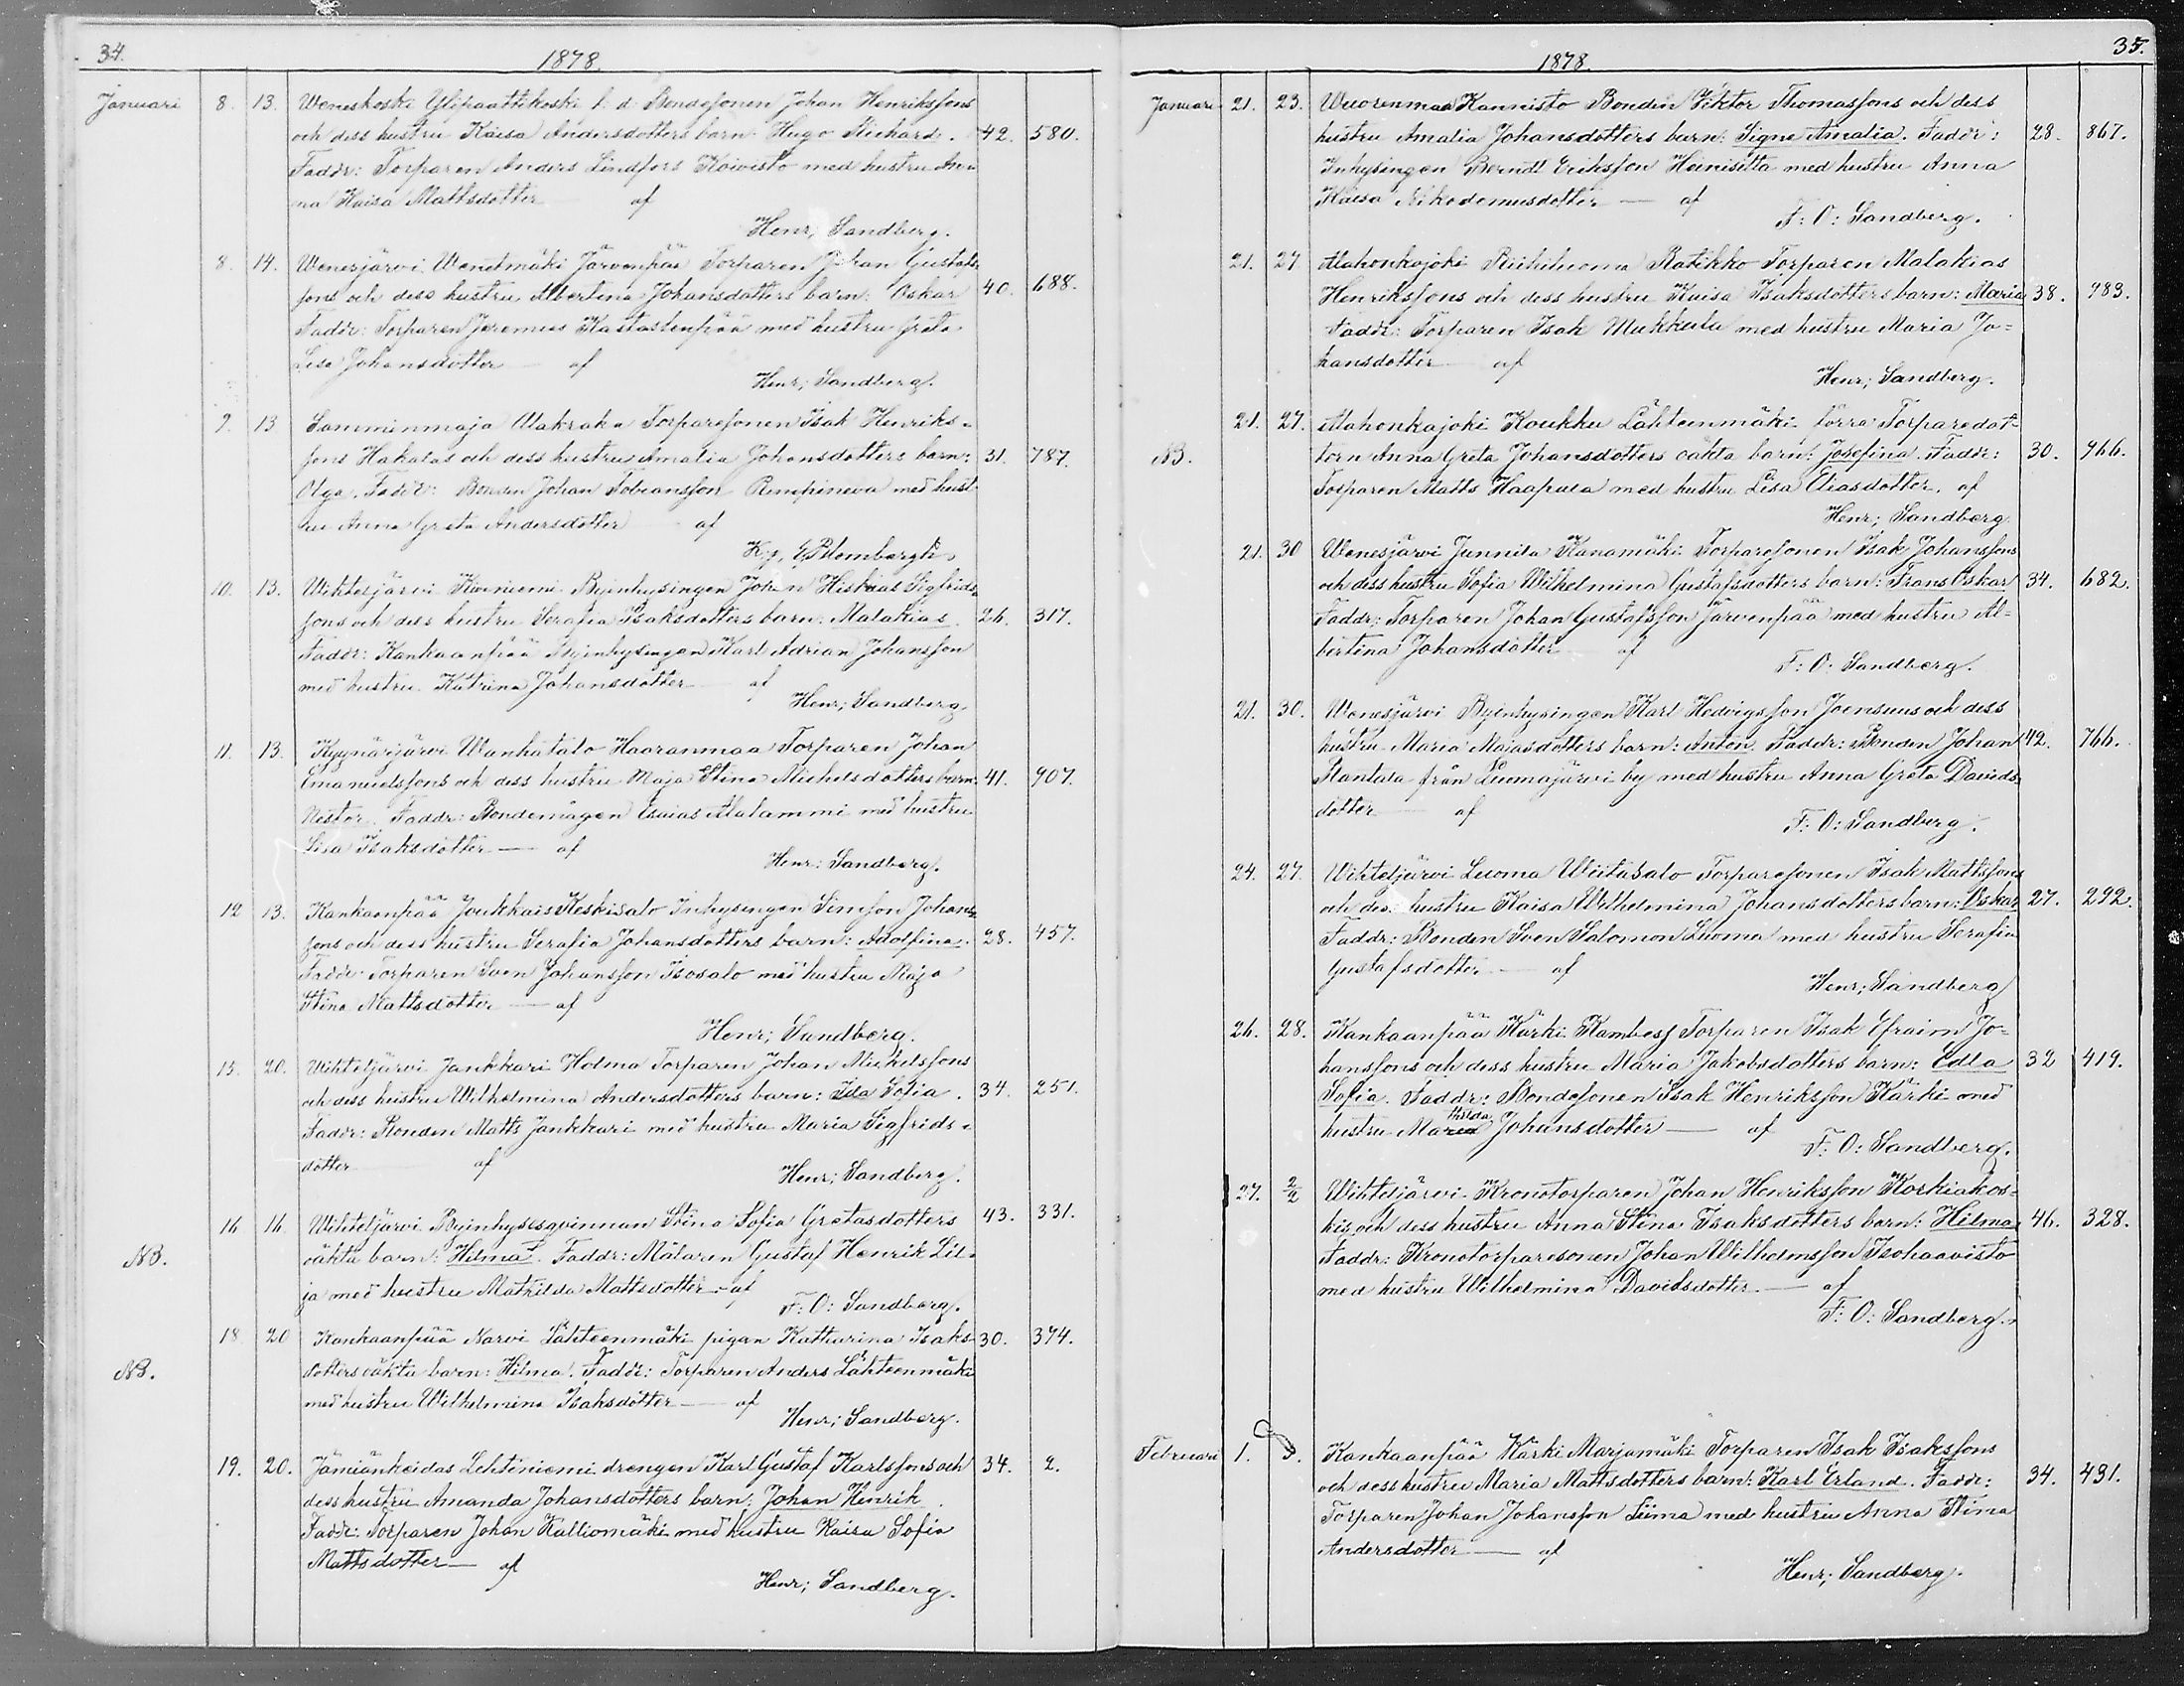 34.
1878.
Januari 8. 13. Weneskoski Ylipaattikoski f. d. Bondesonen Johan Henrikssons
och dess hustru Kaisa Andersdotters barn: Hugo Richard. 42. 580.
Faddr: Torparen Anders Lindfors Koivisto med hustru An=
na Kaisa Mattsdotter af
Henr; Sandberg.
8. 14. Wenesjärvi Wenetmäki Järvenpää Torparen Johan Gustafs=
sons och dess hustru Albertina Johansdotters barn: Oskar 40. 688.
Faddr: Torparen Jeremias Kastastenpää med hustru Greta
Lisa Johansdotter af
Henr; Sandberg.
9. 13 Samminmaja Alakraka Torparesonen Isak Henriks=
sons Hakalas och dess hustru Amalia Johansdotters barn: 31. 787.
Olga. Faddr: Bonden Johan Tobiansson Rempineva med hust=
ru Anna Greta Andersdotter af
K. J. Blombergh.
10. 13. Wihteljärvi Kiviniemi Byinhysingen Johan Hiskias Sigfrids=
sons och dess hustru Serafia Isaksdotters barn: Malakias. 26. 317.
Faddr: Kankaanpää Byinhysingen Karl Adrian Johansson
med hustru Katrina Johansdotter af
Henr; Sandberg
11. 13. Kyynärjärvi Wanhatalo Haoranmaa Torparen Johan
Emanuelssons och dess hustru Maja Stina Michelsdotters barn: 41. 907.
Nestor. Faddr: Bondemågen Esaias Alalammi med hustru
Lisa Isaksdotter — af
Henr: Sandberg.
12 13. Kankaanpää Joukkais Keskisalo Inhysingen Simson Johans=
sons och dess hustru Serafia Johansdotters barn: Adolfina. 28. 457.
Faddr Torparen Sven Johansson Isosalo med hustru Maja
Stina Mattsdotter — af
Henr; Sandberg.
15. 20. Wihteljärvi Jankkari Holma Torparen Johan Michelssons
och dess hustru Wilhelmina Andersdotters barn: Ida Sofia. 34. 251.
Faddr: Bonden Matts Jankkari med hustru Maria Sigfrids=
dotter af
Henr; Sandberg.
16 16. Wihteljärvi Byinhysesqvinnan Stina Sofia Gretasdotters 43. 331.
NB. oäkta barn: Hilma. Faddr: Målaren Gustaf Henrik Lil=
ja med hustru Mathilda Mattsdotter — af
F: O: Sandberg.
18 20 Kankaanpää Narvi Lähteenmäki pigan Katharina Isaks= 30. 374.
NB. dotters oäkta barn: Hilma. Faddr: Torparen Anders Lähteenmäki
med hustru Wilhelmina Isaksdotter — af
Henr; Sandberg.
19. 20. Jämiänkeidas Lehtiniemi drengen Karl Gustaf Karlssons och 34. 2.
dess hustru Amanda Johansdotters barn: Johan Henrik.
Faddr: Torparen Johan Kalliomäki med hustru Kaisa Sofia
Mattsdotter — af
Henr; Sandberg.
35.
1878.
Januari 21. 23. Wuorenmaa Kannisto Bonden Viktor Thomassons och dess
hustru Amalia Johansdotters barn: Signe Amalia. Faddr: 28. 867.
Inhysingen Berndt Eriksson Heinisitta med hustru Anna
Kaisa Nikodemusdotter — af
F: O: Sandberg.
21. 27 Alahonkajoki Riihiluoma Ratikko Torparen Malakias
Henrikssons och dess hustru Kaisa Isaksdotters barn: Maria 38. 983.
Faddr: Torparen Isak Mukkala med hustru Maria Jo=
hansdotter af
Henr; Sandberg.
21. 27. Alahonkajoki Koukku Lähteenmäki förra Torparedot=
NB. tern Anna Greta Johansdotters oäkta barn: Josefina. Faddr: 30. 966.
Torparen Matts Haapala med hustru Lisa Eliasdotter. af
Henr; Sandberg
21. 30 Wenesjärvi Junnila Kanamäki Torparesonen Isak Johanssons
och dess hustru Sofia Wilhelmina Gustafsdotters barn: Frans Oskar 34. 682.
Faddr: Torparen Johan Gustafsson Järvenpää med hustru Al=
bertina Johansdotter af
F: O: Sandberg.
21. 30. Wenesjärvi Byinhysingen Karl Hedvigsson Joensuus och dess
hustru Maria Majasdotters barn: Anton. Faddr: Bonden Johan 42. 766.
Rantala från Luomajärvi by med hustru Anna Greta Davids=
dotter af
F: O: Sandberg.
24. 27. Wihteljärvi Luoma Wiitasalo Torparesonen Isak Mattssons
och dess hustru Kaisa Wilhelmina Johansdotters barn: Oskar 27. 292.
Faddr: Bonden Sven Salomon Luoma med hustru Serafia
Gustafsdotter — af
Henr; Sandberg
26. 28. Kankaanpää Kärki Kambess Torparen Isak Efraim Jo=
hanssons och dess hustru Maria Jakobsdotters barn: Edla 32 419.
Sofia. Faddr: Bondesonen Isak Henriksson Kärki med
hustru Mathilda Johansdotter — af
F: O: Sandberg.
27. 2/2 Wihteljärvi Kronotorparen Johan Henriksson Korkiakos=
kis och dess hustru Anna Stina Isaksdotters barn: Hilma 46. 328.
Faddr: Kronotorparesonen Johan Wilhelmsson Isohaavisto
med hustru Wilhelmina Davidsdotter — af
F: O: Sandberg.
Februari 1. 3. Kankaanpää Kärki Marjamäki Torparen Isak Isakssons
och dess hustru Maria Mattsdotters barn: Karl Erland. Faddr: 34. 431.
Torparen Johan Johansson Siima med hustru Anna Stina
Andersdotter — af
Henr; Sandberg.